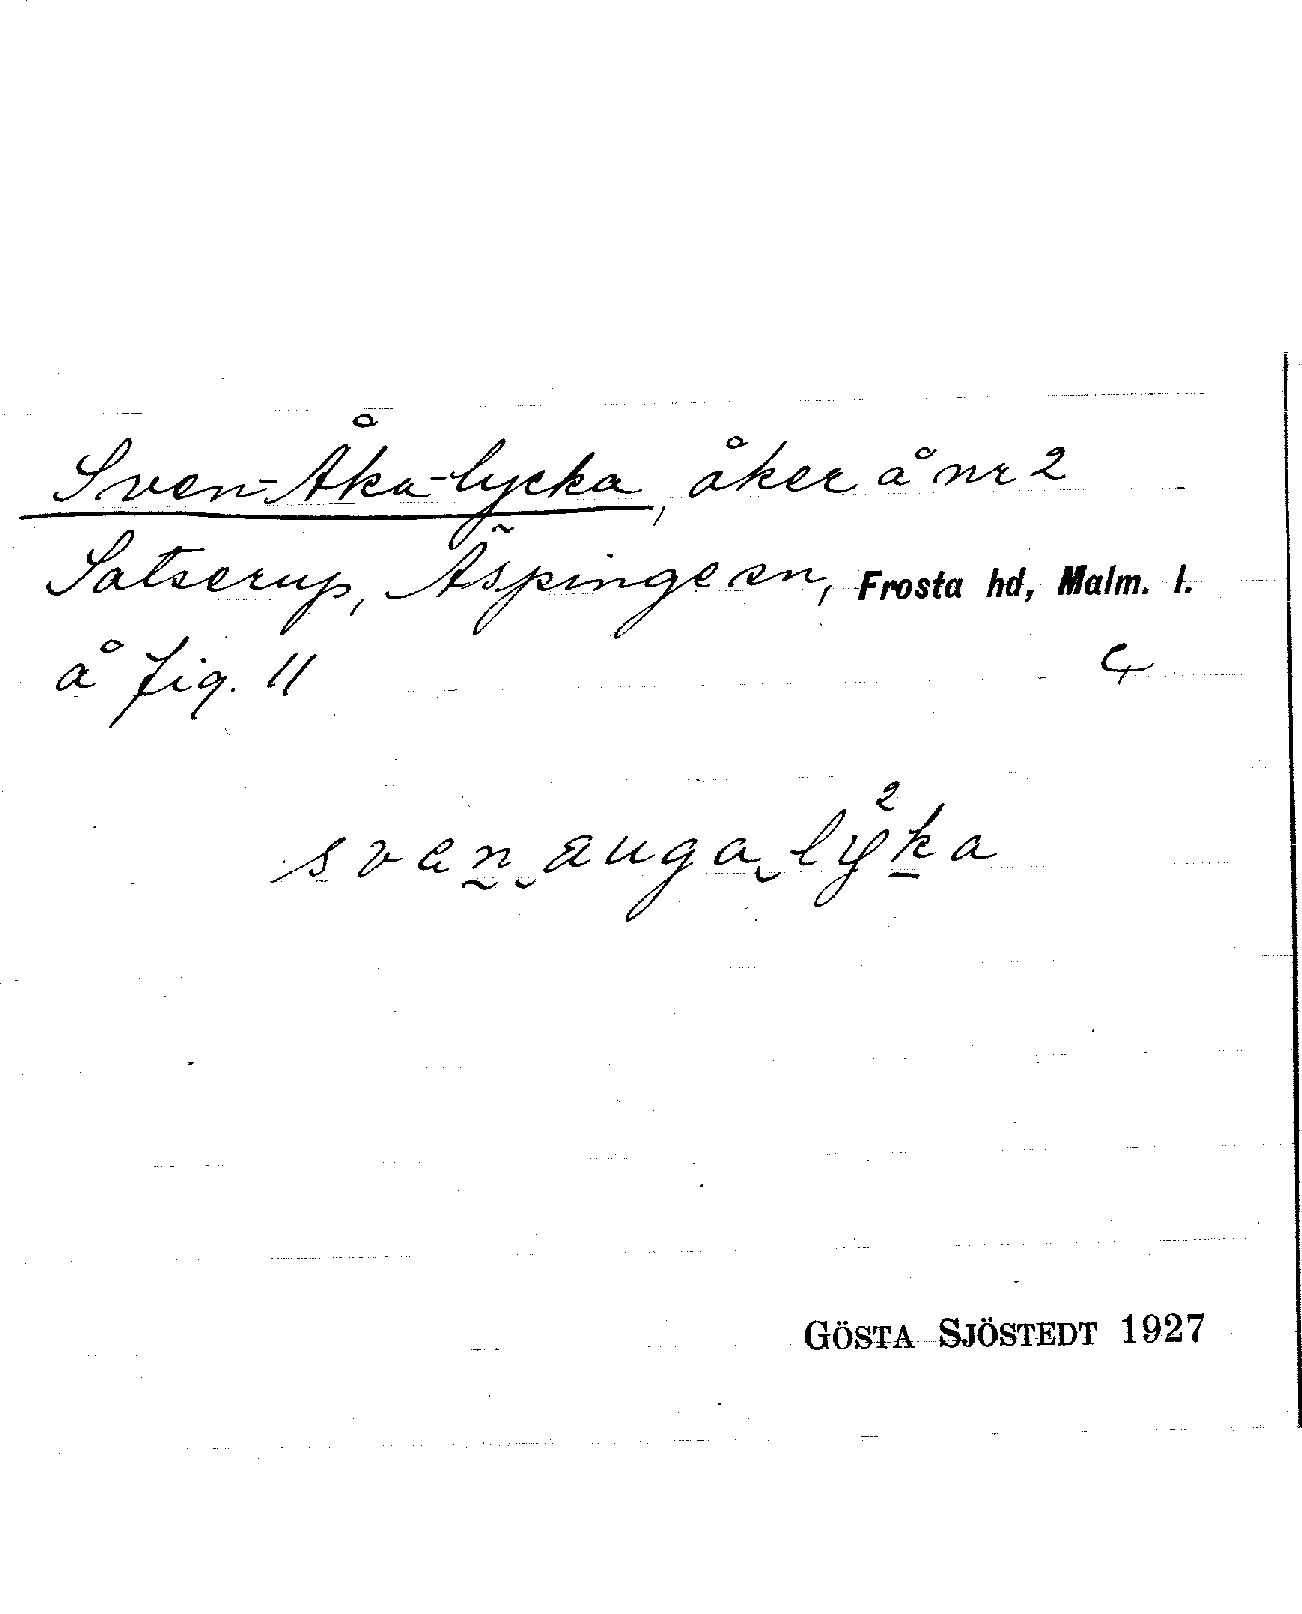 Sven-Åka-lycka, åker å nr 2
Satserup, Äspinge sn, Frosta hd, Malm. l.
å fig. 11
sven auga ly²ka
GÖSTA SJÖSTEDT 1927